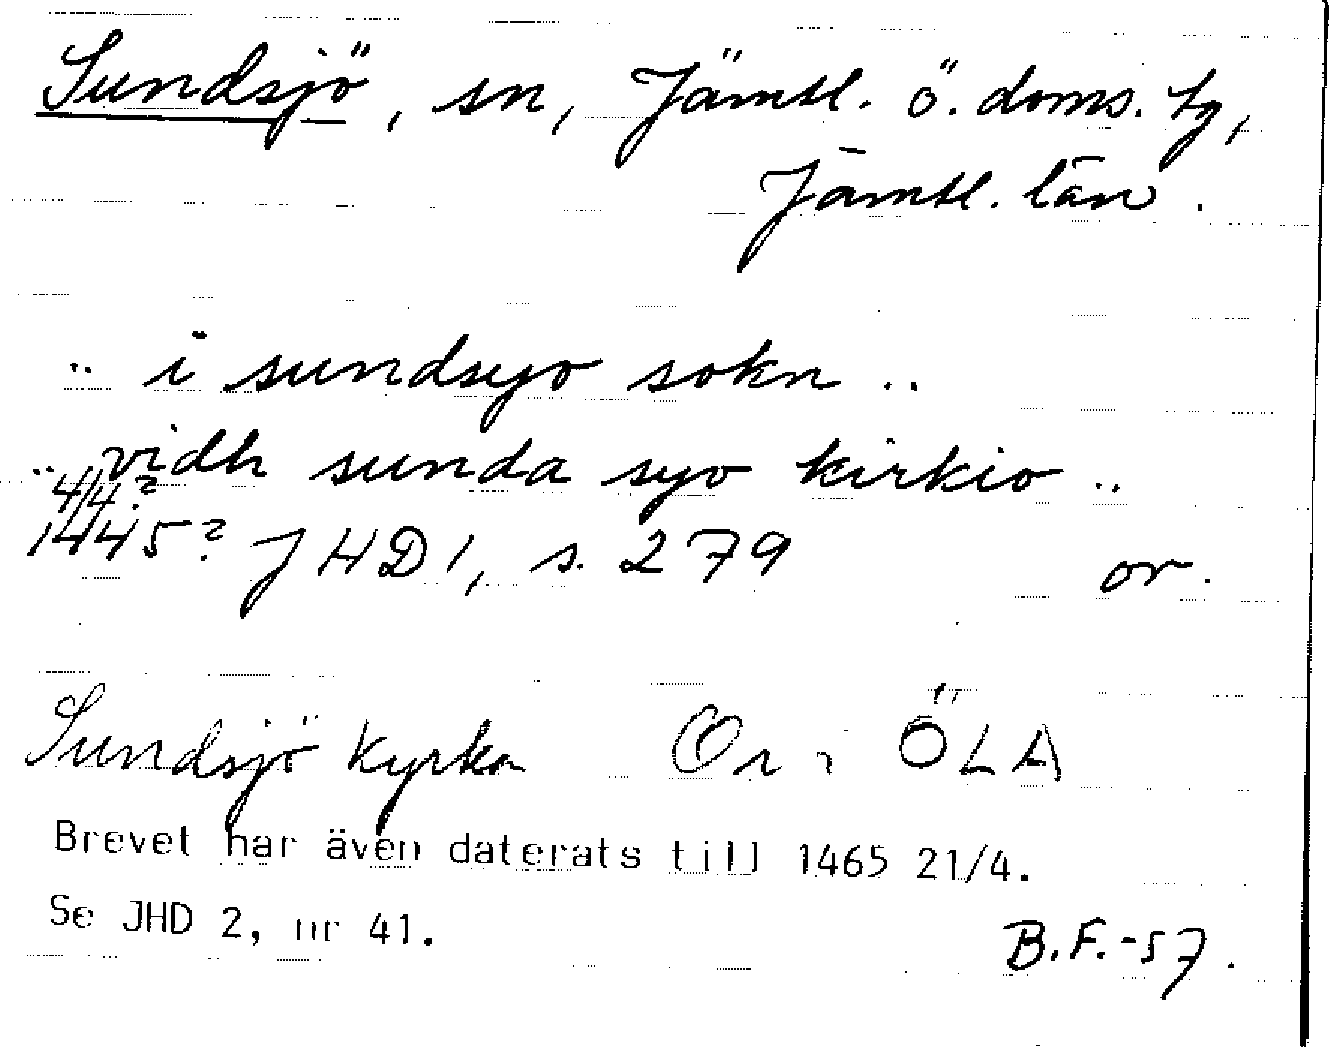 Sundsjö, sn, Jämtl. ö. doms. tg,
Jämtl. län.
.. i sundsyo sokn ..
.. vidh sunda syo kirkio ..
4/4?
1445? JHD 1, s. 279 or.
Sundsjö kyrka Or i ÖLA
Brevet har även daterats till 1465 21/4.
Se JHD 2, nr 41.
B.F.-57.